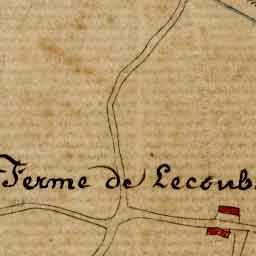 Ferme de Lecoub